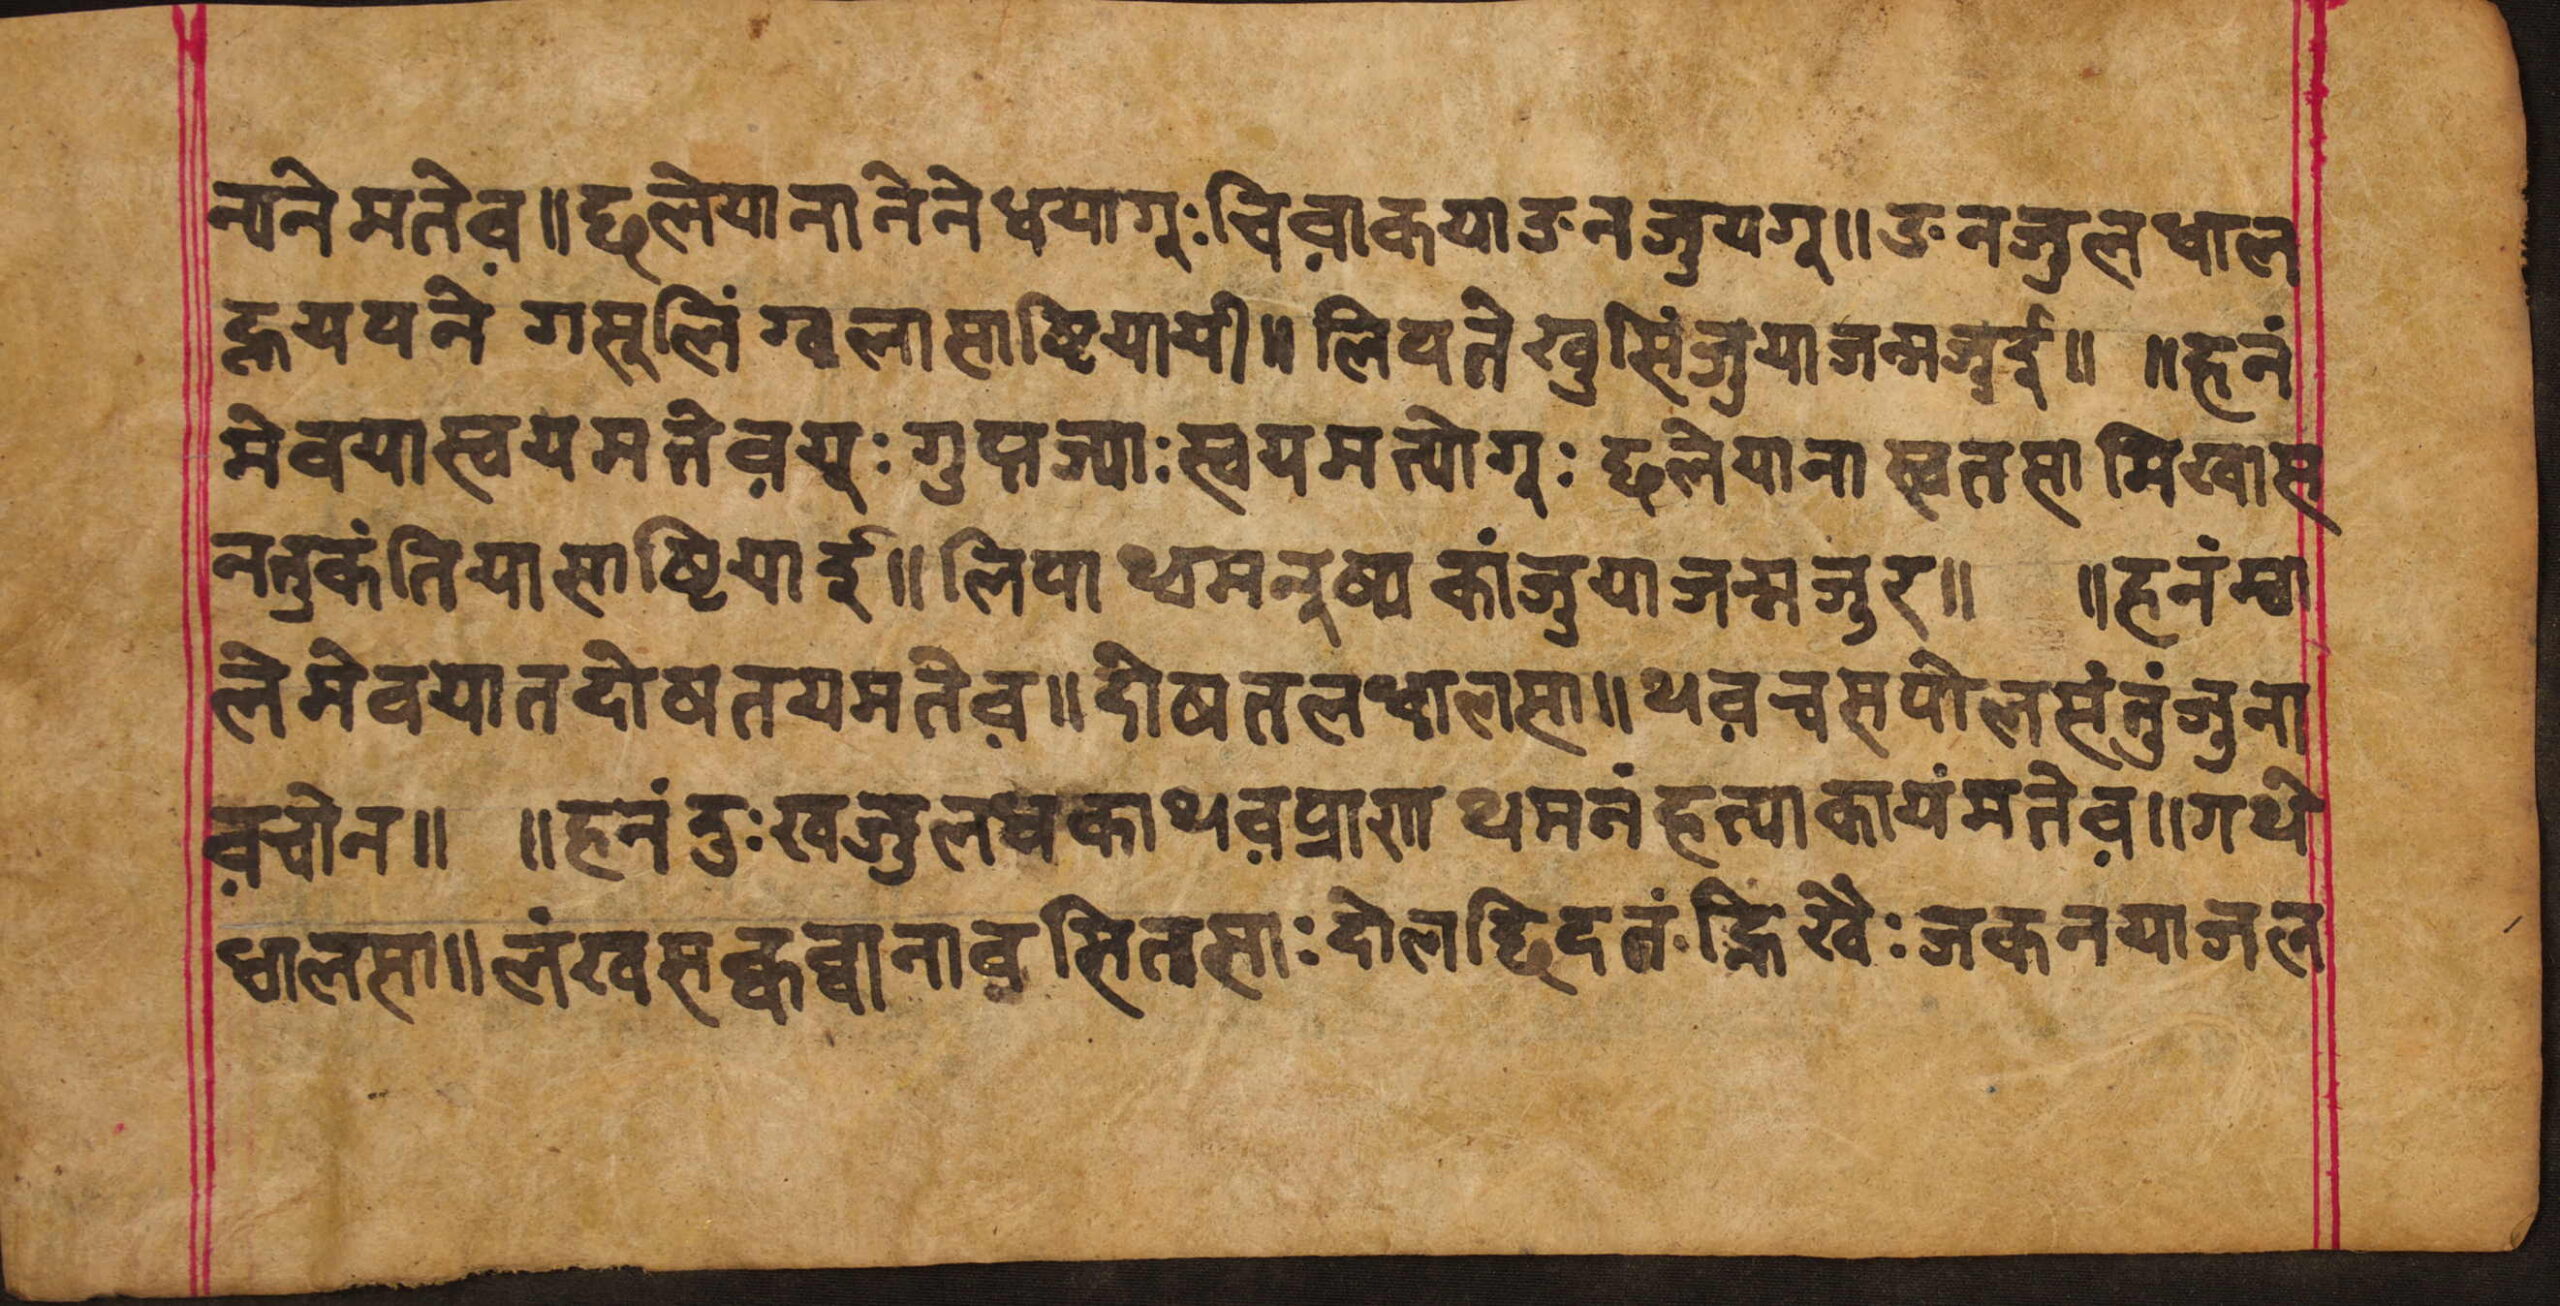 न्यने मतेव़॥ छलेयाना नेने धयागूः चिव़ाकया ङन जुयगू॥ ङन जुल धाल
ह्नययने गसूलिं ग्वलासाष्टियायी॥ लिपते खुसिं जुया जन्म जुई॥ ॥हनं
मेवया स्वयमत्तेव़यूः गुप्तज्याः स्वयमत्योगूः छलेयाना स्वतसा मिखास
नतुकं तियासाष्टियाई॥ लिपा थ्व मनूष्य कां जुया जन्म जुर॥ ॥हनं म्वा
ले मेवयात दोष तयमतेव़॥ दोष तल धालसा॥ थव़ च्वसपोलसंतुं जुना
व़चोन॥ ॥हनं दुःख जुल धका थव़ प्राण थमनं हत्या कायंमतेव़॥ गथे
धालसा॥ लंखस क्वव्वानाव़ सितसाः दोलछिदतं ह्निखैः जकनया जल